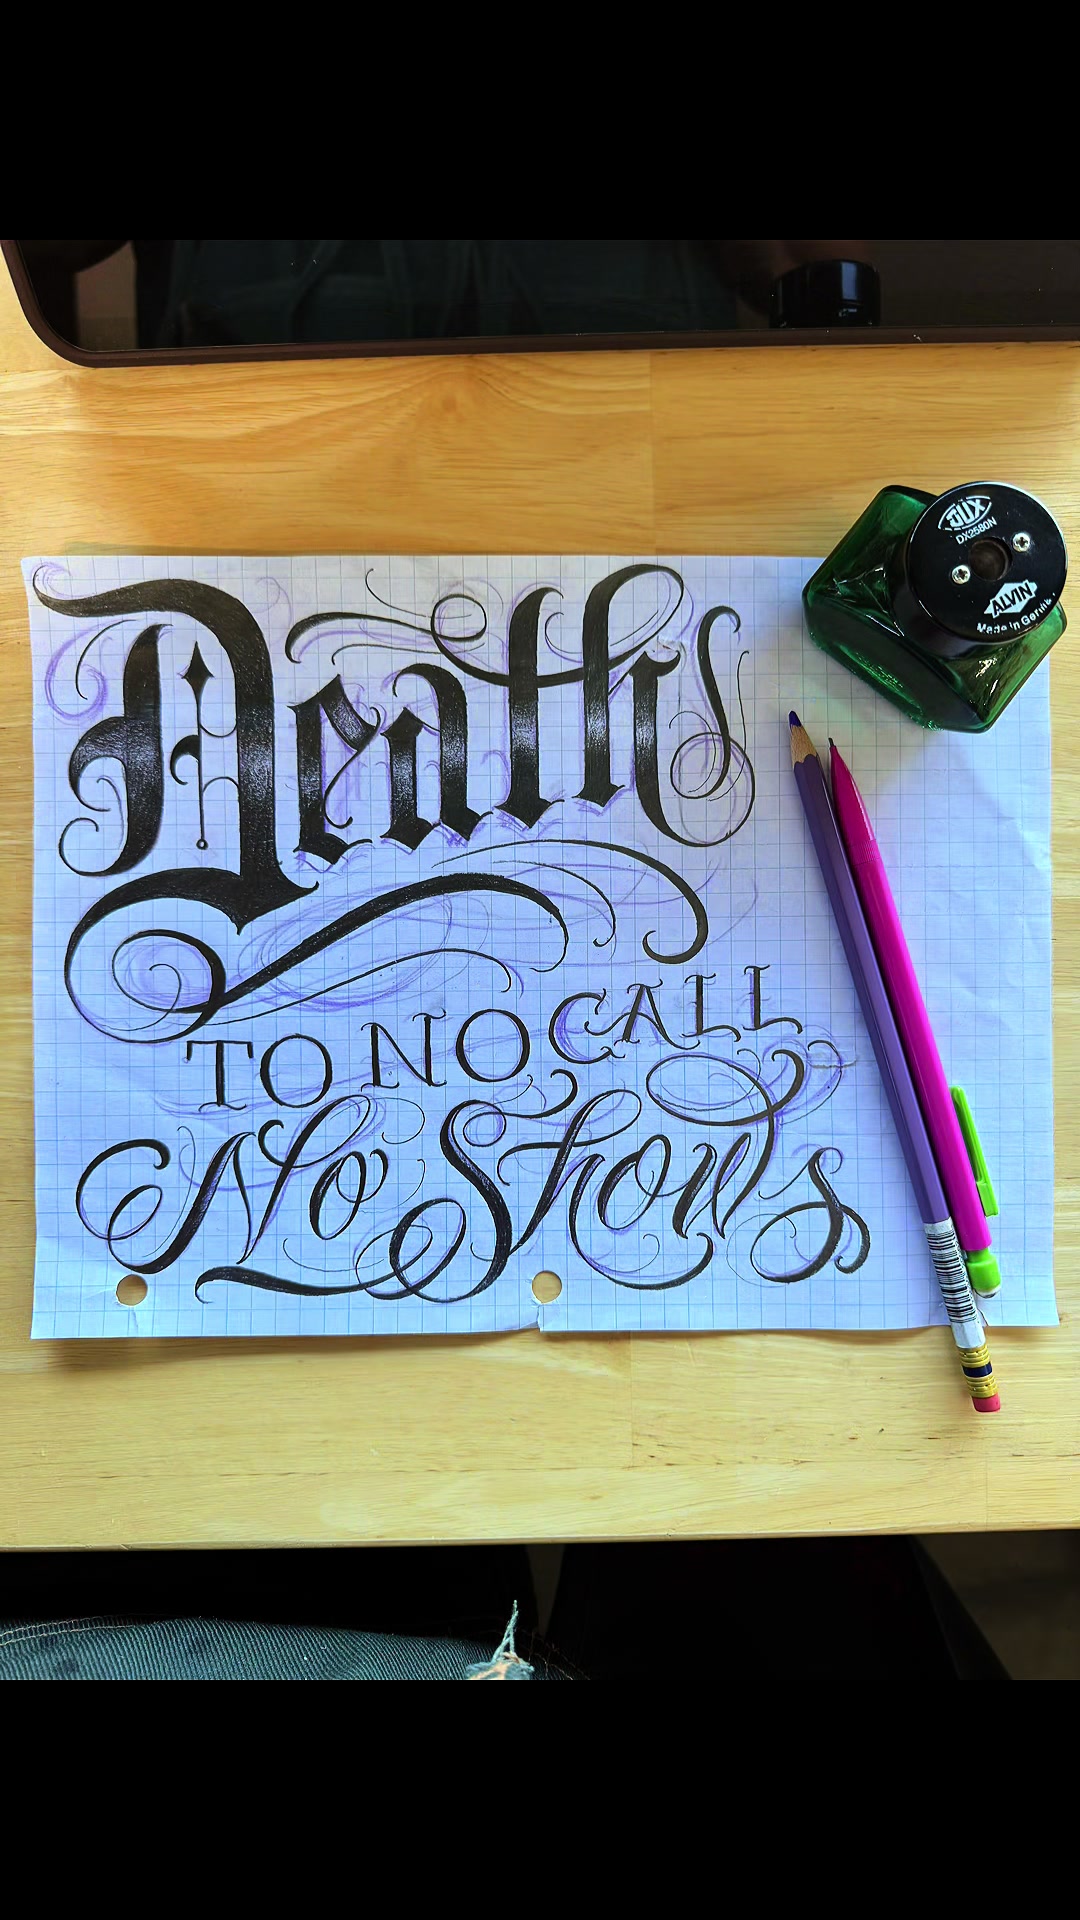 Death
TO NO CALL
No Shows
DÜX
DX2580N
ALVIN
Made in Germ